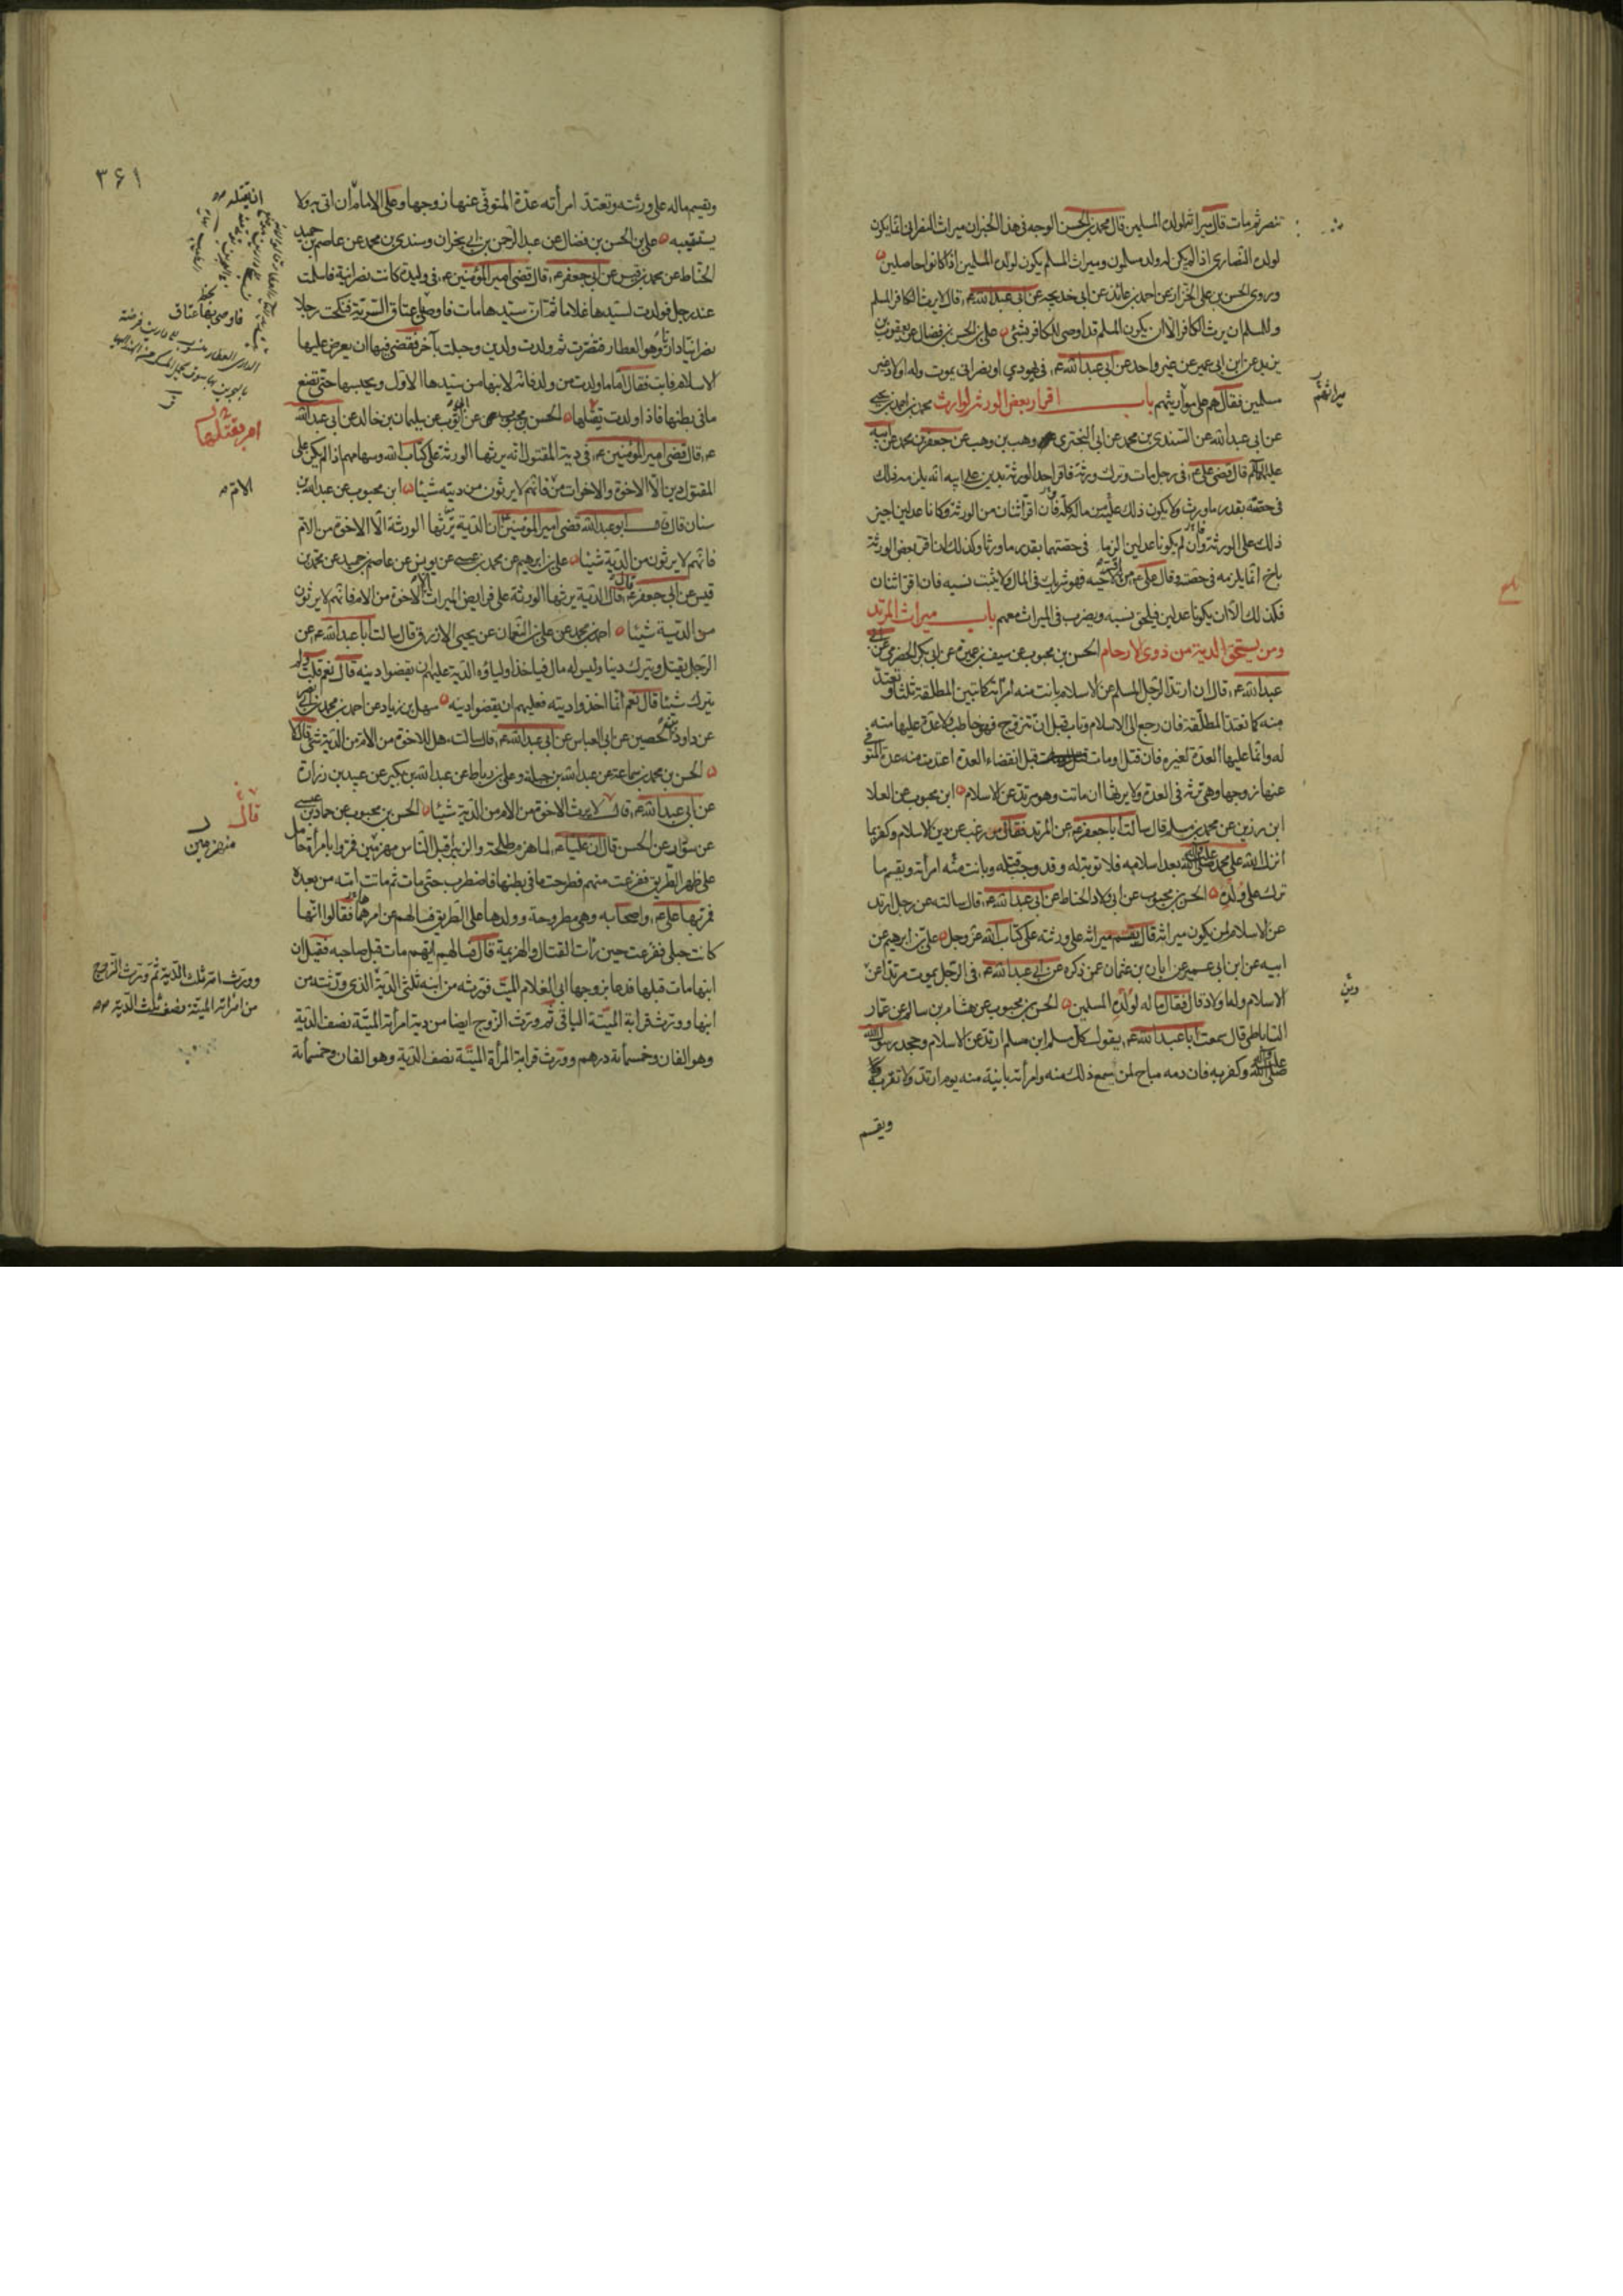 تنصر ثم مات قال ميراثه لولده المسلمين قال محمد بن الحسن الوجه في هذا الخبر ان ميراث النصراني انما يكون
لولده النصارى اذا لم يكن له ولد مسلمون وميراث المسلم يكون لولده المسلمين اذا كانوا حاصلين
وروى الحسن بن علي الخزاز عن احمد بن عائذ عن ابي خديجه عن ابي عبد الله ع قال لا يرث الكافر المسلم
وللمسلم ان يرث الكافر الا ان يكون المسلم قد اوصى للكافر بشئ علي بن الحسن بن فضال عن يعقوب بن
يزيد عن ابن ابي عمير عن غير واحد عن ابي عبد الله ع في يهودي او نصراني يموت وله اولاد غير
مسلمين فقال هم على مواريثهم باب اقرار بعض الورثة لوارث محمد بن احمد بن يحيى
عن ابي عبد الله عن السندي بن محمد عن ابي البختري وهب بن وهب عن جعفر بن محمد عن ابيه
قال قضى علي ع في رجل مات وترك ورثة فاقر احد الورثة بدين على ابيه انه يلزمه ذلك
في حصته بقدر ما ورث ولا يكون ذلك عليه من ماله كله فان اقر اثنان من الورثة وكانا عدلين اجيز
ذلك على الورثة وان لم يكونا عدلين الزما في حصتهما بقدر ما ورثا وكذلك ان اقر بعض الورثة
باخ انما يلزمه في حصته وقال علي ع من اقر لاخيه فهو شريك في المال ولا يثبت نسبه فان اقر اثنان
فكذلك الا ان يكونا عدلين فيلحق نسبه ويضرب في الميراث معهم باب ميراث المرتد
ومن يستحق الدية من ذوي الارحام الحسن بن محبوب عن سيف بن عميرة عن ابي بكر الحضرمي عن ابي
عبد الله ع قال ان ارتد الرجل المسلم عن الاسلام بانت منه امراته كما تبين المطلقة ثلثا وتعتد
منه كما تعتد المطلقة فان رجع الى الاسلام وتاب قبل ان تتزوج فهو خاطب ولا عدة عليها منه
له وانما عليها العدة لغيره فان قتل او مات قبل انقضاء العدة اعتدت منه عدة المتوفى
عنها زوجها وهي ترثه في العدة ولا يرثها ان ماتت وهو مرتد عن الاسلام ابن محبوب عن العلا
ابن رزين عن محمد بن مسلم قال سالت ابا جعفر ع عن المرتد فقال من رغب عن دين الاسلام وكفر بما
انزل الله على محمد صلى الله عليه وآله بعد اسلامه فلا توبة له وقد وجب قتله وبانت منه امراته ويقسم ما
ترك على ولده الحسن بن محبوب عن ابي ولاد الحناط عن ابي عبد الله ع قال سالته عن رجل ارتد
عن الاسلام لمن يكون ميراثه قال يقسم ميراثه على ورثته على كتاب الله عز وجل علي بن ابرهيم عن
ابيه عن ابن ابي عمير عن ابان بن عثمان عمن ذكره عن ابي عبد الله ع في الرجل يموت مرتدا عن
الاسلام وله اولاد قال فقال ماله لولده المسلمين الحسن بن محبوب عن هشام بن سالم عن عمار
الساباطي قال سمعت ابا عبد الله ع يقول كل مسلم ابن مسلم ارتد عن الاسلام وجحد رسول الله
صلى الله عليه وآله وكفر به فان دمه مباح لمن سمع ذلك منه وامراته باينة منه يوم ارتد ولا تقربه
ويقسم
ميراثهم
٣٦١
ويقسم ماله على ورثته وتعتد امراته عدة المتوفى عنها زوجها وعلى الامام ان اتي به ولا
يستتيبه علي بن الحسن بن فضال عن عبد الرحمن بن ابي نجران وسندي بن محمد عن عاصم بن حميد
الحناط عن محمد بن قيس عن ابي جعفر ع قال قضى امير المؤمنين ع في وليدة كانت نصرانية فاسلمت
عند رجل فولدت لسيدها غلاما ثم ان سيدها مات فاوصى باعتاق السرية فنكحت رجلا
نصرانيا داريا وهو العطار فتنصرت ثم ولدت ولدين وحبلت باخر فقضى فيها ان يعرض عليها
الاسلام فابت فقال اما ما ولدت من ولد فانه لابنها من سيدها الاول ويحبسها حتى تضع
ما في بطنها فاذا ولدت يقتلها الحسن بن محبوب عن ابي ايوب عن سليمان بن خالد عن ابي عبد الله
ع قال قضى امير المؤمنين ع في دية المقتول انه يرثها الورثة على كتاب الله وسهامهم اذا لم يكن على
المقتول دين الا الاخوة والاخوات من فانهم لا يرثون من ديته شيئا ابن محبوب عن عبد الله بن
سنان قال قال ابو عبد الله قضى امير المؤمنين ان الدية يرثها الورثة الا الاخوة من الام
فانهم لا يرثون من الدية شيئا علي بن ابرهيم عن محمد بن عيسى عن يونس عن عاصم بن حميد عن محمد بن
قيس عن ابي جعفر ع قال الدية يرثها الورثة على فرايض الميراث الا الاخوة من الام فانهم لا يرثون
من الدية شيئا احمد بن محمد عن علي بن النعمان عن يحيى الازرق قال سالت ابا عبد الله ع عن
الرجل يقتل ويترك دينا وليس له مال فياخذ اولياؤه الدية عليهم ان يقضوا دينه قال نعم قلت ولم
يترك شيئا قال نعم انما اخذوا ديته فعليهم ان يقضوا دينه سهل بن زياد عن احمد بن محمد بن ابي نصر
عن داود بن الحصين عن ابي العباس عن ابي عبد الله ع قال سالته هل للاخوة من الام من الدية شئ قال لا
الحسن بن محمد بن سماعة عن عبد الله بن جبلة وعلي بن رباط عن عبد الله بن بكير عن عبيد بن زرارة
عن ابي عبد الله ع قال لا يرث الاخوة من الام من الدية شيئا الحسن بن محبوب عن حماد بن عيسى
عن سوار عن الحسن قال ان عليا ع لما هزم طلحة والزبير اقبل الناس مهزمين فمروا بامرأة حامل
على ظهر الطريق ففزعت منهم فطرحت ما في بطنها فاضطرب حتى مات ثم ماتت امه من بعده
فمر بها علي ع واصحابه وهي مطروحة وولدها على الطريق فسالهم عن امرهما فقالوا انها
كانت حبلى ففزعت حين رات القتال والهزيمة قال فسالهم ايهم مات قبل صاحبه فقيل ان
ابنها مات قبلها فدعا بزوجها ابي الغلام الميت فورثه من ابنه ثلثي الدية الذي ورثته من
ابنها وورث قرابة الميتة الباقي ثم ورث الزوج ايضا من دية امراة الميتة نصف الدية
وهو الفان وخمسمائة درهم وورث قرابة المرأة الميتة نصف الدية وهو الفان وخمسمائة
ان يقتله
فاوصى بها عتاق
امر بقتلها
الام
قال
منهزمين
وورث امه ثلث الدية ثم ورث الزوج
من امراته الميتة نصف ثلث الدية